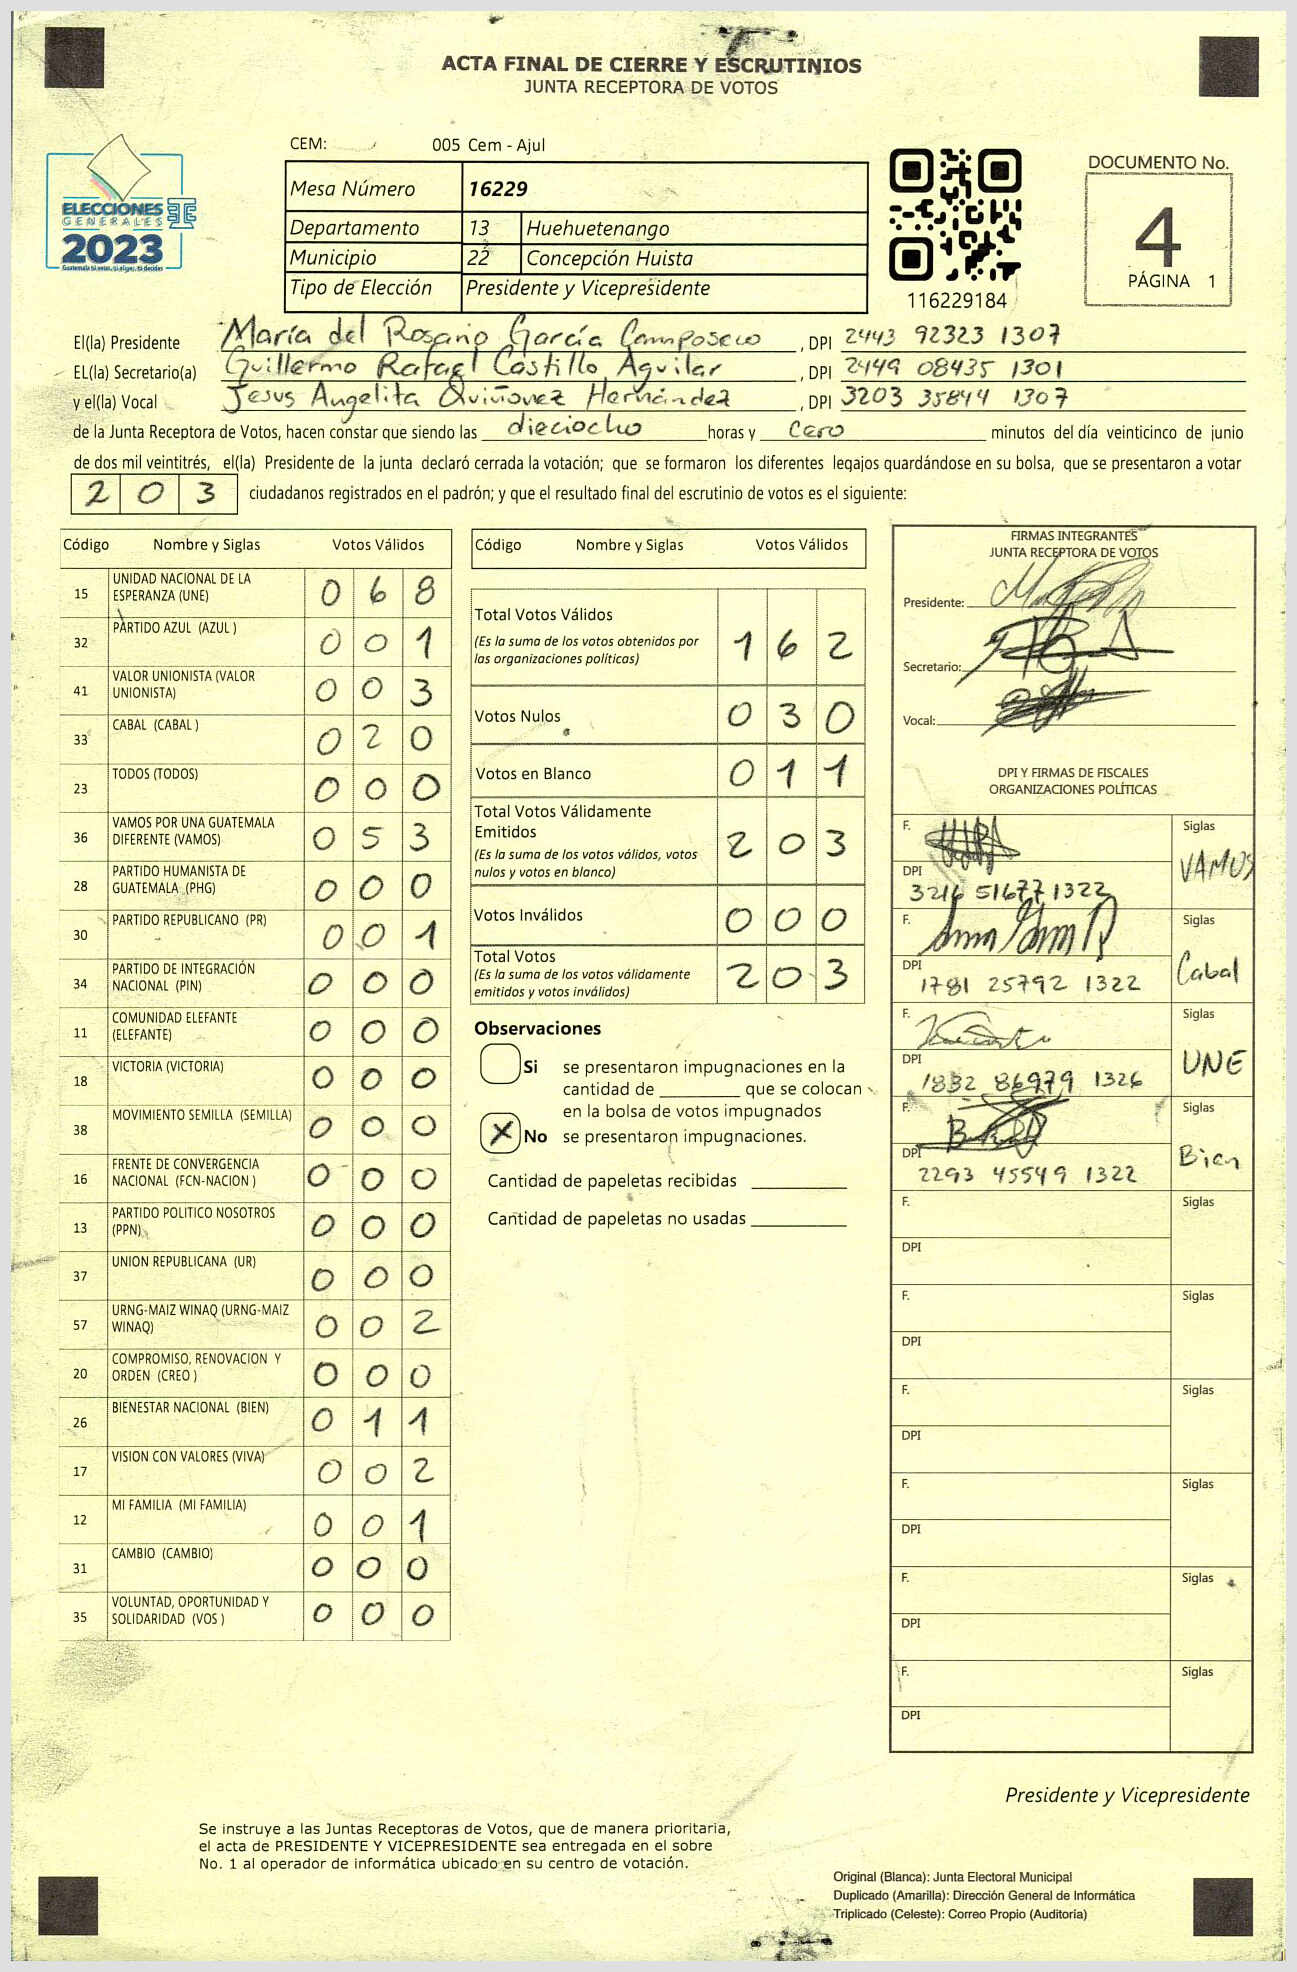 ACTA FINAL DE CIERRE Y ESCRUTINIOS
JUNTA RECEPTORA DE VOTOS
ELECCIONES
GENERALES
2023
Guatemala tú votas, tú eliges, tú decides
CEM: 005 Cem - Ajul
Mesa Número 16229
Departamento 13 Huehuetenango
Municipio 22 Concepción Huista
Tipo de Elección Presidente y Vicepresidente
116229184
DOCUMENTO No.
4
PÁGINA 1
El(la) Presidente María del Rosario García Camposeco, DPI 2443 92323 1307
EL(la) Secretario(a) Guillermo Rafael Castillo Aguilar, DPI 2449 08435 1301
y el(la) Vocal Jesus Angelita Quiñonez Hernández, DPI 3203 35844 1307
de la Junta Receptora de Votos, hacen constar que siendo las dieciocho horas y cero minutos del día veinticinco de junio
de dos mil veintitrés, el(la) Presidente de la junta declaró cerrada la votación; que se formaron los diferentes legajos guardándose en su bolsa, que se presentaron a votar
203 ciudadanos registrados en el padrón; y que el resultado final del escrutinio de votos es el siguiente:
Código Nombre y Siglas Votos Válidos
15 UNIDAD NACIONAL DE LA ESPERANZA (UNE) 0 6 8
32 PARTIDO AZUL (AZUL ) 0 0 1
41 VALOR UNIONISTA (VALOR UNIONISTA) 0 0 3
33 CABAL (CABAL ) 0 2 0
23 TODOS (TODOS) 0 0 0
36 VAMOS POR UNA GUATEMALA DIFERENTE (VAMOS) 0 5 3
28 PARTIDO HUMANISTA DE GUATEMALA (PHG) 0 0 0
30 PARTIDO REPUBLICANO (PR) 0 0 1
34 PARTIDO DE INTEGRACIÓN NACIONAL (PIN) 0 0 0
11 COMUNIDAD ELEFANTE (ELEFANTE) 0 0 0
18 VICTORIA (VICTORIA) 0 0 0
38 MOVIMIENTO SEMILLA (SEMILLA) 0 0 0
16 FRENTE DE CONVERGENCIA NACIONAL (FCN-NACION ) 0 0 0
13 PARTIDO POLITICO NOSOTROS (PPN) 0 0 0
37 UNION REPUBLICANA (UR) 0 0 0
57 URNG-MAIZ WINAQ (URNG-MAIZ WINAQ) 0 0 2
20 COMPROMISO, RENOVACION Y ORDEN (CREO ) 0 0 0
26 BIENESTAR NACIONAL (BIEN) 0 1 1
17 VISION CON VALORES (VIVA) 0 0 2
12 MI FAMILIA (MI FAMILIA) 0 0 1
31 CAMBIO (CAMBIO) 0 0 0
35 VOLUNTAD, OPORTUNIDAD Y SOLIDARIDAD (VOS ) 0 0 0
Código Nombre y Siglas Votos Válidos
Total Votos Válidos 1 6 2
(Es la suma de los votos obtenidos por
las organizaciones políticas)
Votos Nulos 0 3 0
Votos en Blanco 0 1 1
Total Votos Válidamente
Emitidos 2 0 3
(Es la suma de los votos válidos, votos
nulos y votos en blanco)
Votos Inválidos 0 0 0
Total Votos 2 0 3
(Es la suma de los votos válidamente
emitidos y votos inválidos)
Observaciones
Si se presentaron impugnaciones en la
cantidad de ________ que se colocan
en la bolsa de votos impugnados
X No se presentaron impugnaciones.
Cantidad de papeletas recibidas
Cantidad de papeletas no usadas
FIRMAS INTEGRANTES
JUNTA RECEPTORA DE VOTOS
Presidente:
Secretario:
Vocal:
DPI Y FIRMAS DE FISCALES
ORGANIZACIONES POLÍTICAS
F. Siglas
VAMOS
DPI
3216 51677 1322
F. Siglas
Cabal
DPI
1781 25792 1322
F. Siglas
UNE
DPI
1832 86979 1326
F. Siglas
Bien
DPI
2293 45549 1322
F. Siglas
DPI
F. Siglas
DPI
F. Siglas
DPI
F. Siglas
DPI
F. Siglas
DPI
F. Siglas
DPI
Presidente y Vicepresidente
Se instruye a las Juntas Receptoras de Votos, que de manera prioritaria,
el acta de PRESIDENTE Y VICEPRESIDENTE sea entregada en el sobre
No. 1 al operador de informática ubicado en su centro de votación.
Original (Blanca): Junta Electoral Municipal
Duplicado (Amarilla): Dirección General de Informática
Triplicado (Celeste): Correo Propio (Auditoría)